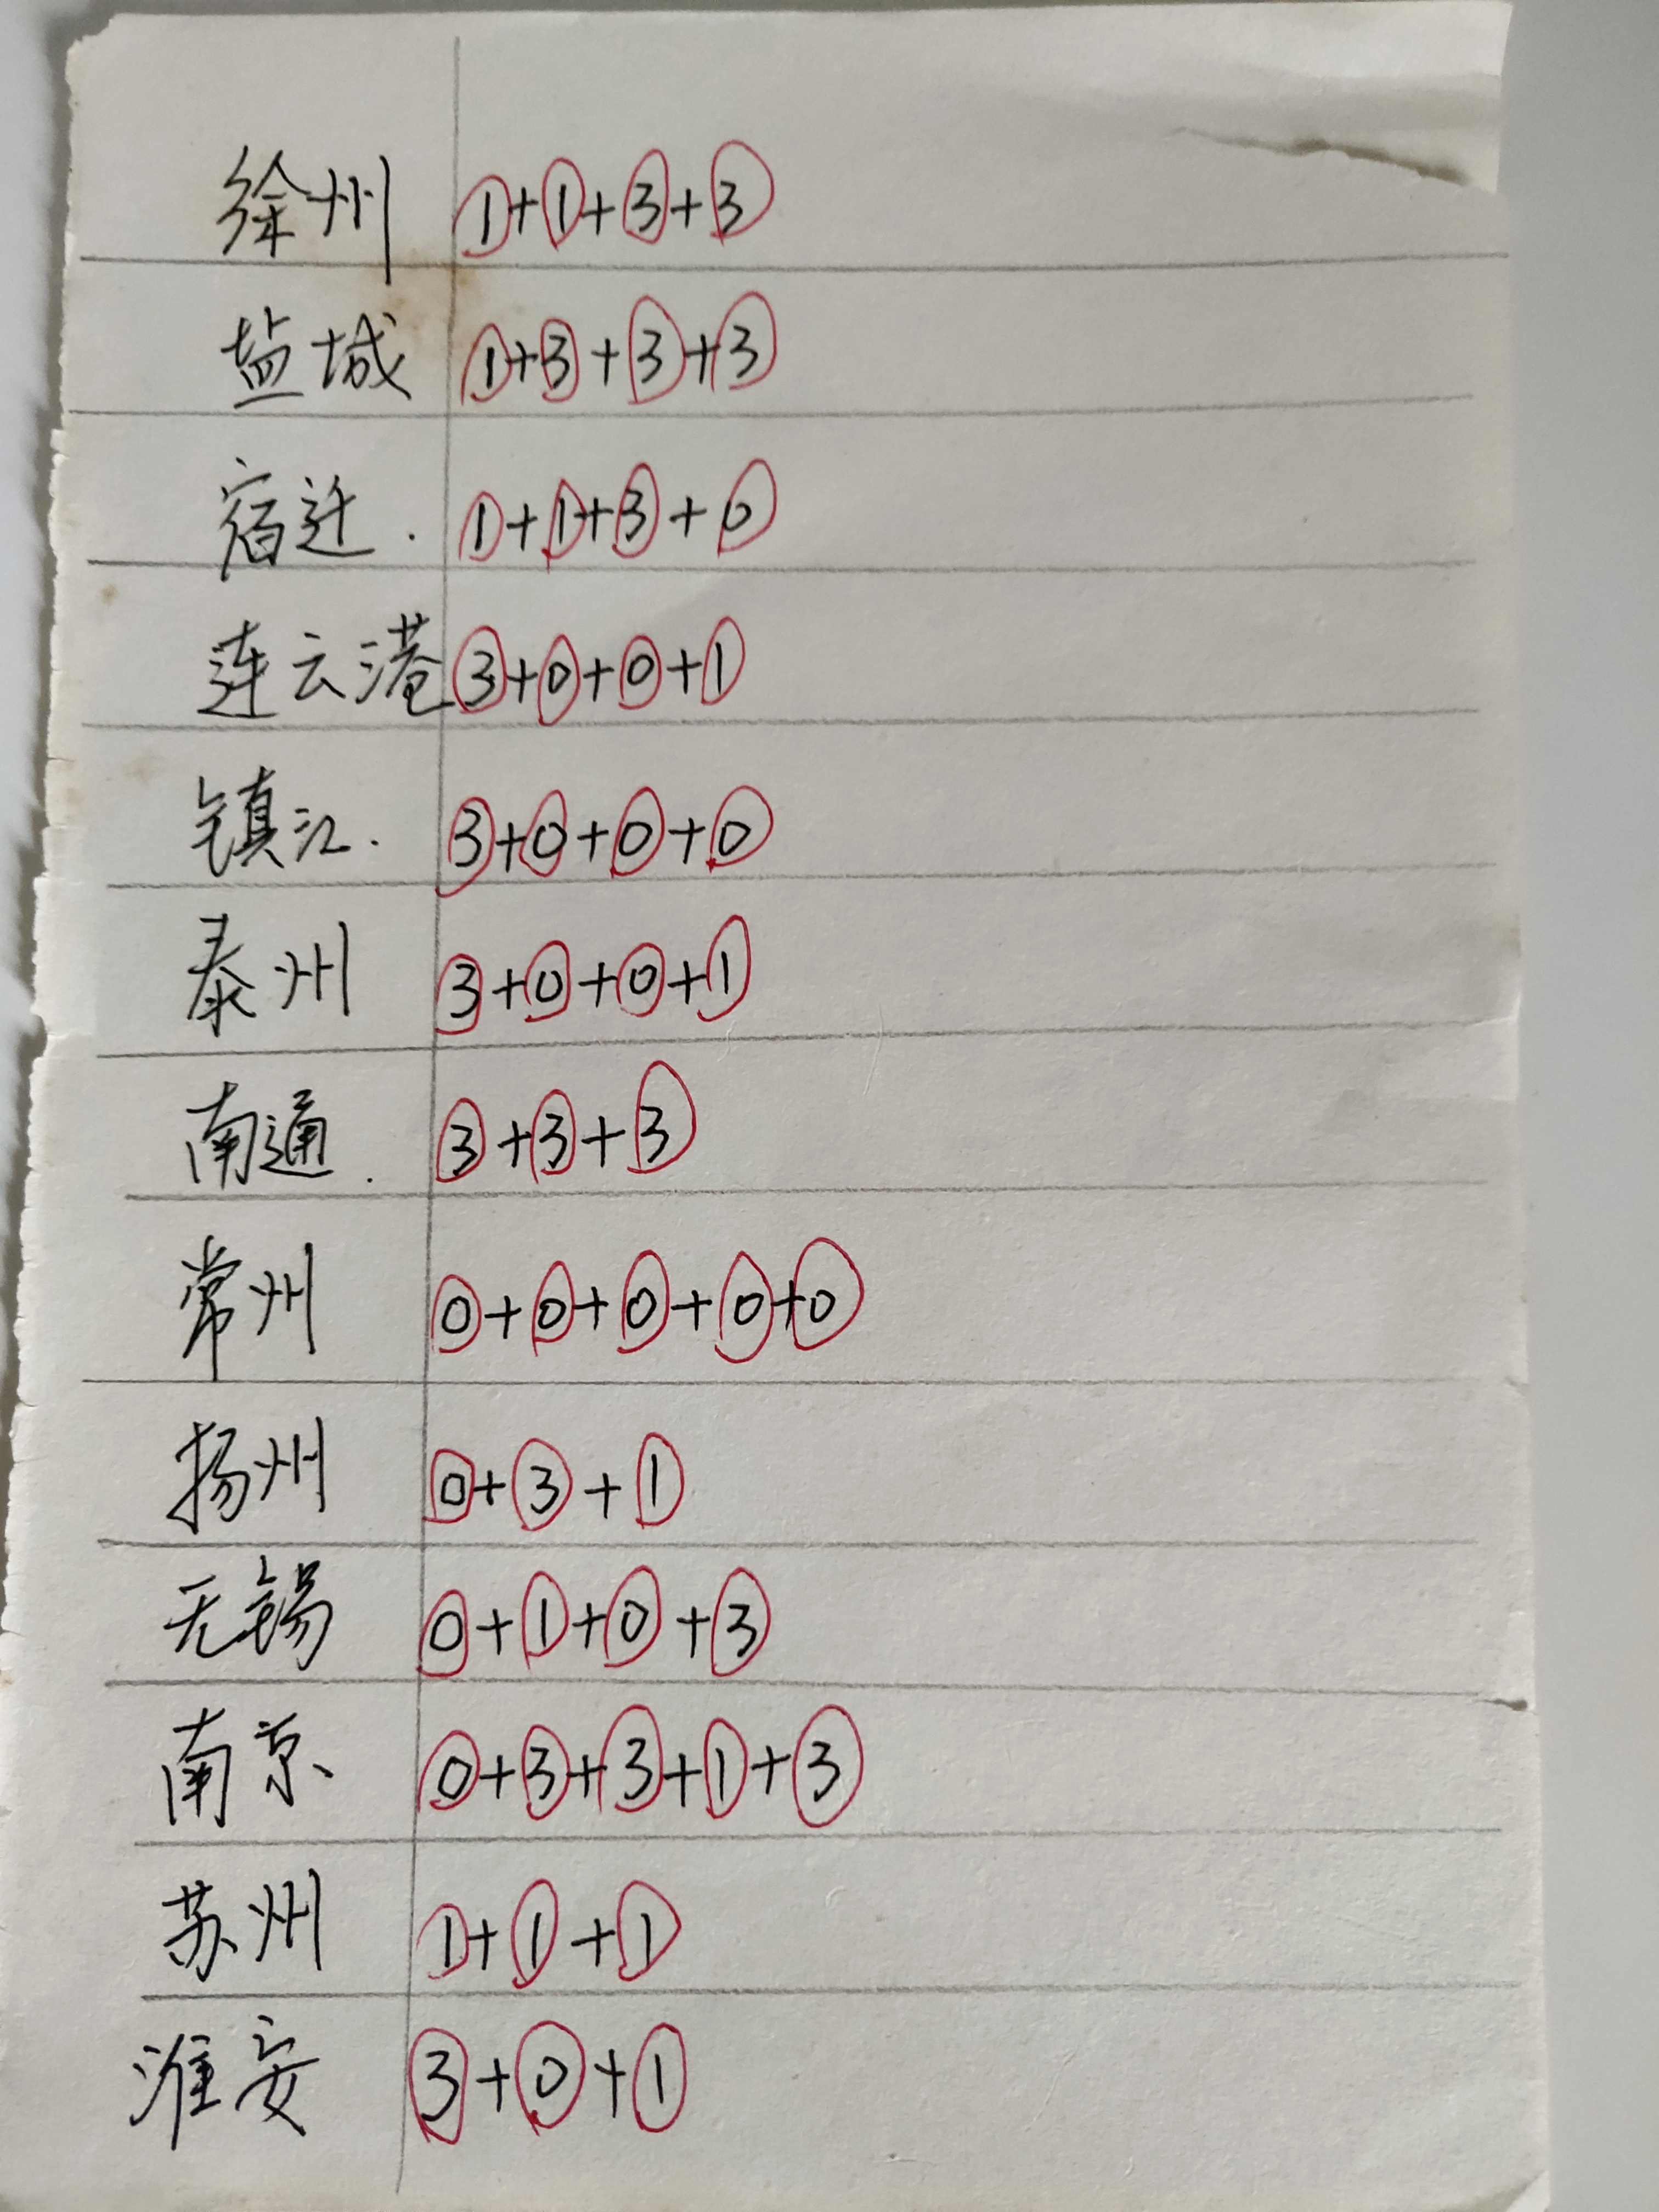 徐州 1+1+3+3
盐城 1+3+3+3
宿迁. 1+1+3+0
连云港 3+0+0+1
镇江. 3+0+0+0
泰州 3+0+0+1
南通. 3+3+3
常州 0+0+0+0+0
扬州 0+3+1
无锡 0+1+0+3
南京 0+3+3+1+3
苏州 1+1+1
淮安 3+0+1